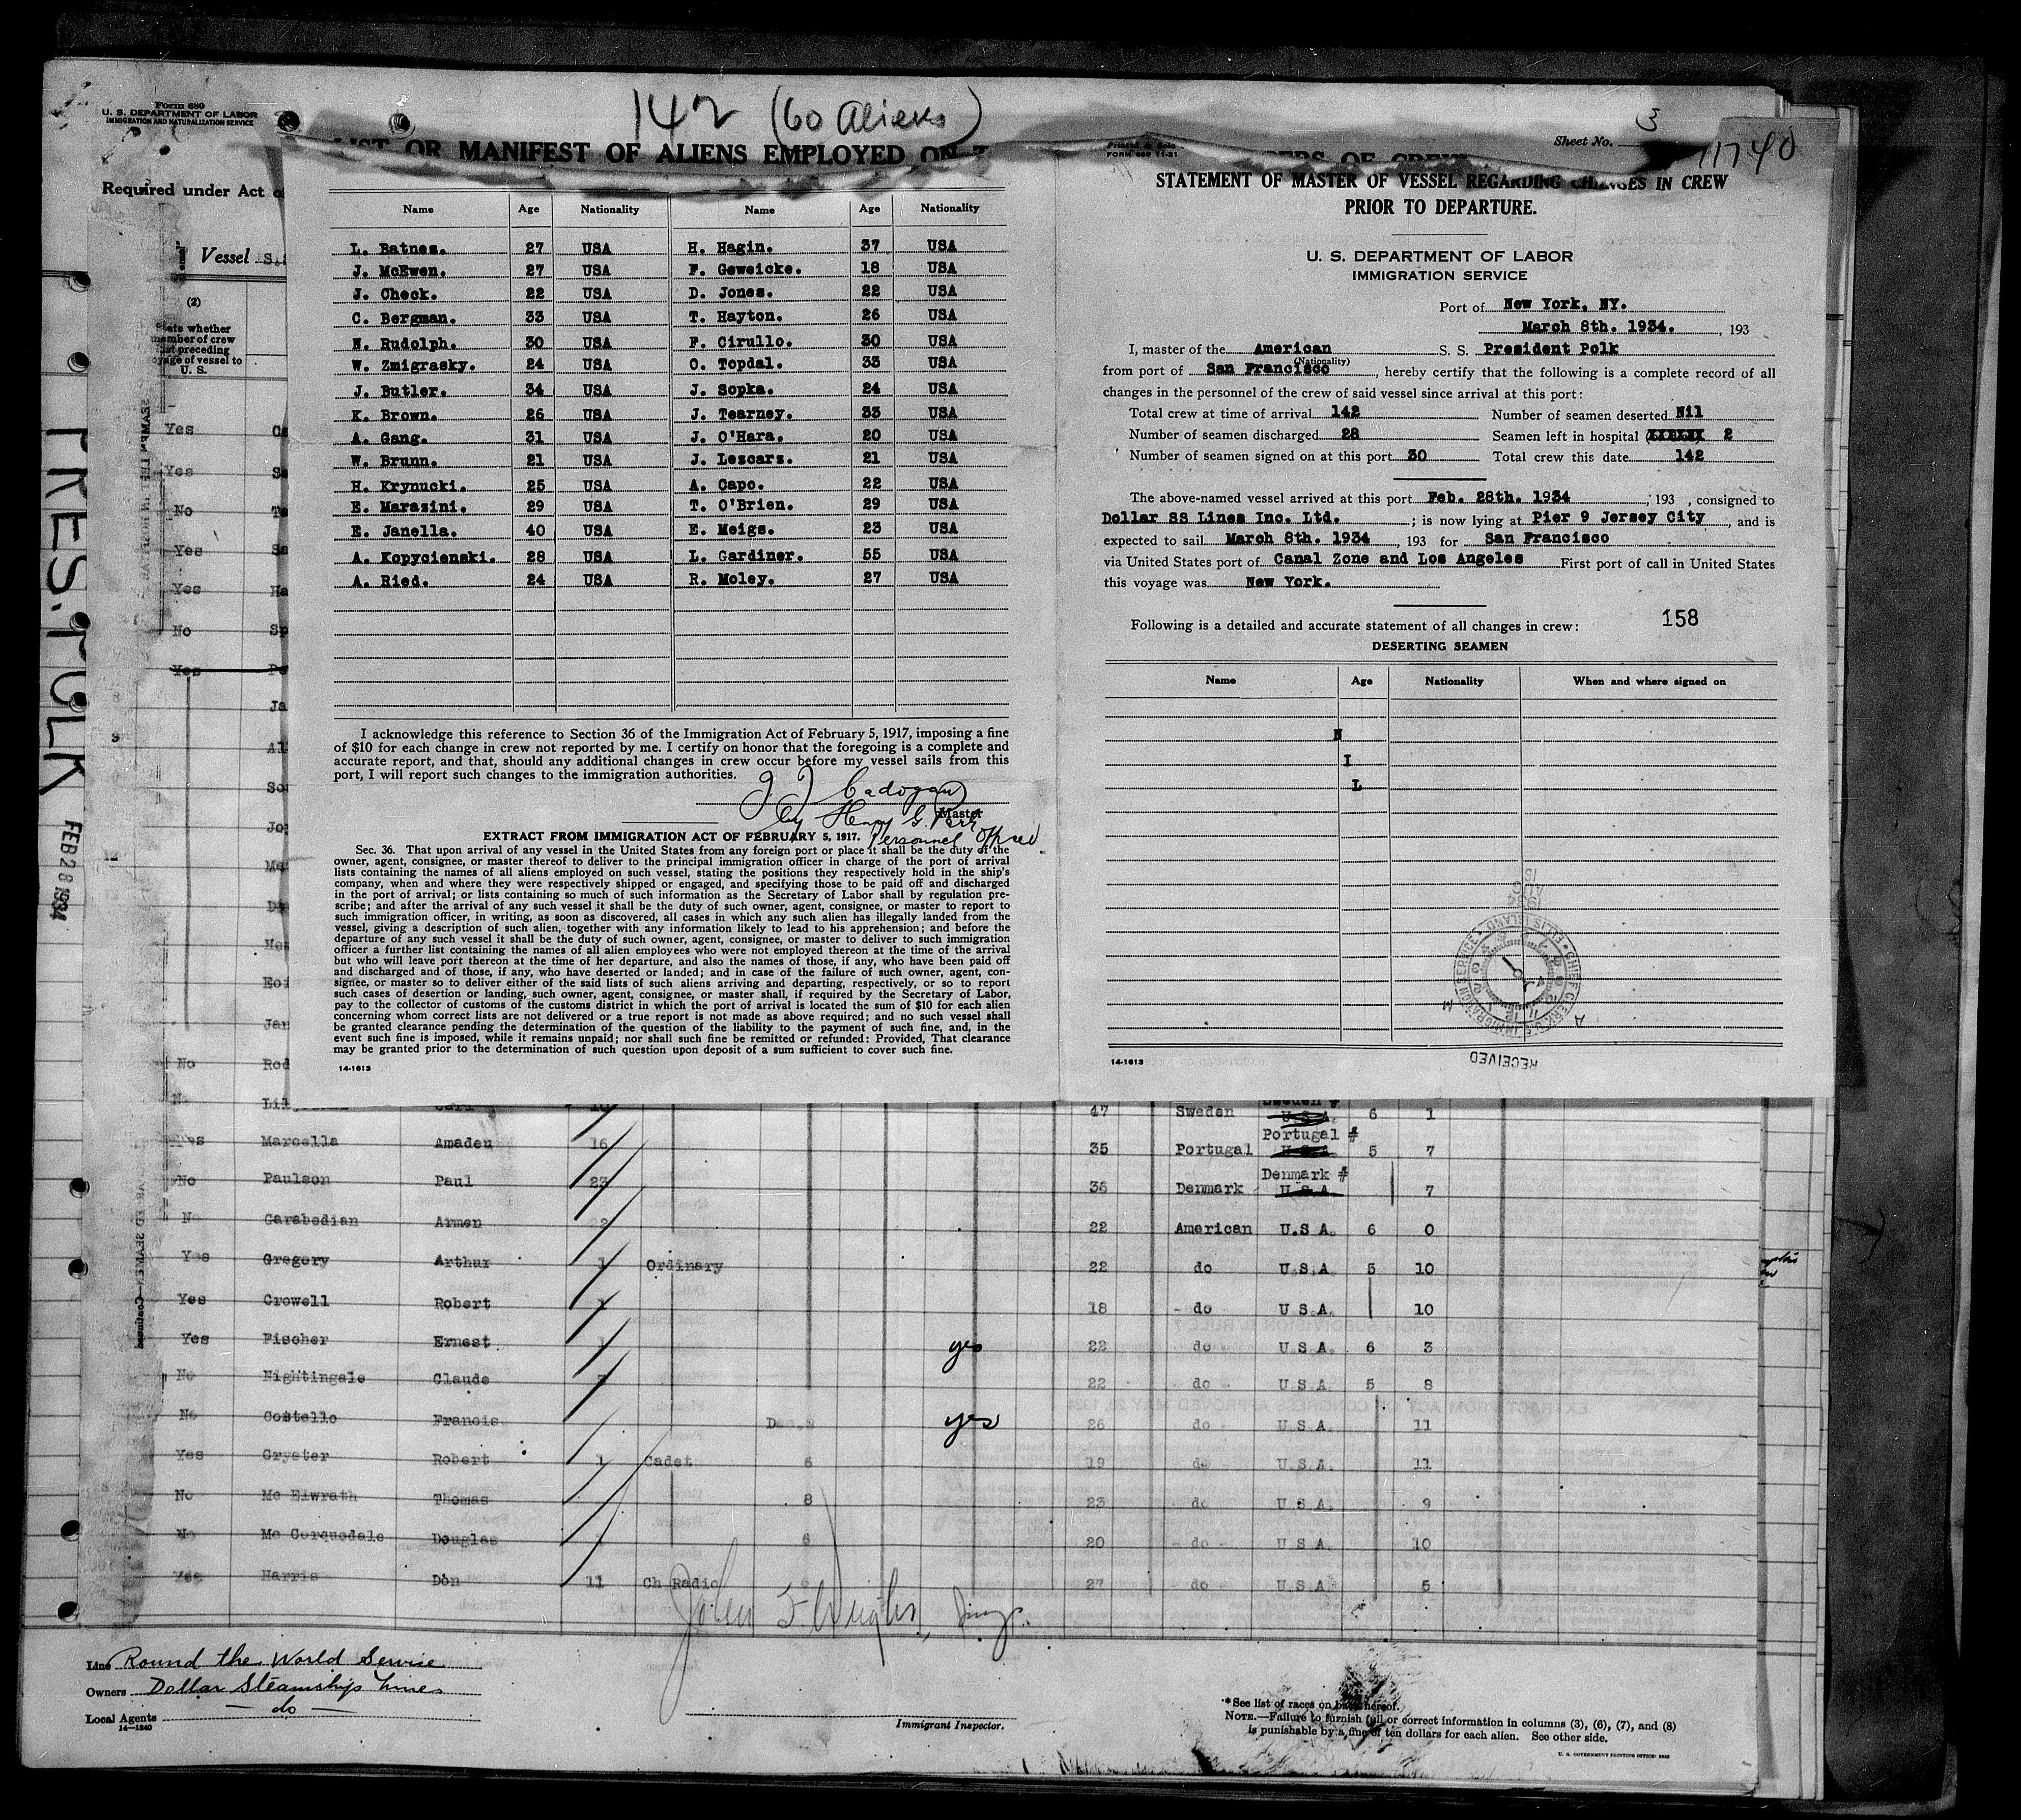 Form 680
U. S. DEPARTMENT OF LABOR
IMMIGRATION AND NATURALIZATION SERVICE
142 (60 Aliens)
LIST OR MANIFEST OF ALIENS EMPLOYED ON
Sheet No. 3
11740
Required under Act
Vessel S.S
(2)
State whether
member of crew
last preceding
voyage of vessel to
U. S.
PRES. POLK
FEB 28 1934
Name Age Nationality Name Age Nationality
L. Batnes. 27 USA H. Hagin. 37 USA
J. McEwen. 27 USA F. Geweicke. 18 USA
J. Check. 22 USA D. Jones. 22 USA
C. Bergman. 33 USA T. Hayton. 26 USA
N. Rudolph. 30 USA F. Cirullo. 30 USA
W. Zmigrasky. 24 USA O. Topdal. 33 USA
J. Butler. 34 USA J. Sopka. 24 USA
K. Brown. 26 USA J. Tearney. 33 USA
A. Gang. 31 USA J. O'Hara. 20 USA
W. Brunn. 21 USA J. Lescars. 21 USA
H. Krynucki. 25 USA A. Capo. 22 USA
E. Marasini. 29 USA T. O'Brien. 29 USA
E. Janella. 40 USA E. Meigs. 23 USA
A. Kopycienski. 28 USA L. Gardiner. 55 USA
A. Ried. 24 USA R. Moley. 27 USA
I acknowledge this reference to Section 36 of the Immigration Act of February 5, 1917, imposing a fine
of $10 for each change in crew not reported by me. I certify on honor that the foregoing is a complete and
accurate report, and that, should any additional changes in crew occur before my vessel sails from this
port, I will report such changes to the immigration authorities.
J. J. Cadogan
Master
by Henry G. Parr
Personnel Officer
EXTRACT FROM IMMIGRATION ACT OF FEBRUARY 5, 1917.
Sec. 36. That upon arrival of any vessel in the United States from any foreign port or place it shall be the duty of the
owner, agent, consignee, or master thereof to deliver to the principal immigration officer in charge of the port of arrival
lists containing the names of all aliens employed on such vessel, stating the positions they respectively hold in the ship's
company, when and where they were respectively shipped or engaged, and specifying those to be paid off and discharged
in the port of arrival; or lists containing so much of such information as the Secretary of Labor shall by regulation pre-
scribe; and after the arrival of any such vessel it shall be the duty of such owner, agent, consignee, or master to report to
such immigration officer, in writing, as soon as discovered, all cases in which any such alien has illegally landed from the
vessel, giving a description of such alien, together with any information likely to lead to his apprehension; and before the
departure of any such vessel it shall be the duty of such owner, agent, consignee, or master to deliver to such immigration
officer a further list containing the names of all alien employees who were not employed thereon at the time of the arrival
but who will leave port thereon at the time of her departure, and also the names of those, if any, who have been paid off
and discharged and of those, if any, who have deserted or landed; and in case of the failure of such owner, agent, con-
signee, or master so to deliver either of the said lists of such aliens arriving and departing, respectively, or so to report
such cases of desertion or landing, such owner, agent, consignee, or master shall, if required by the Secretary of Labor,
pay to the collector of customs of the customs district in which the port of arrival is located the sum of $10 for each alien
concerning whom correct lists are not delivered or a true report is not made as above required; and no such vessel shall
be granted clearance pending the determination of the question of the liability to the payment of such fine, and, in the
event such fine is imposed, while it remains unpaid; nor shall such fine be remitted or refunded: Provided, That clearance
may be granted prior to the determination of such question upon deposit of a sum sufficient to cover such fine.
14-1613
STATEMENT OF MASTER OF VESSEL REGARDING CHANGES IN CREW
PRIOR TO DEPARTURE.
U. S. DEPARTMENT OF LABOR
IMMIGRATION SERVICE
Port of New York, NY.
March 8th. 1934. , 193
I, master of the American S. S. President Polk
(Nationality)
from port of San Francisco , hereby certify that the following is a complete record of all
changes in the personnel of the crew of said vessel since arrival at this port:
Total crew at time of arrival 142 Number of seamen deserted Nil
Number of seamen discharged 28 Seamen left in hospital 2
Number of seamen signed on at this port 30 Total crew this date 142
The above-named vessel arrived at this port Feb. 28th. 1934 , 193 , consigned to
Dollar SS Lines Inc. Ltd. ; is now lying at Pier 9 Jersey City , and is
expected to sail March 8th. 1934 , 193 for San Francisco
via United States port of Canal Zone and Los Angeles First port of call in United States
this voyage was New York.
158
Following is a detailed and accurate statement of all changes in crew:
DESERTING SEAMEN
Name Age Nationality When and where signed on
N
I
L
CHIEF CLERK U.S. IMMIGRATION SERVICE ELLIS ISLAND
RECEIVED
14-1613
Yes
Yes
No
Yes
Yes
No
Yes
No Rod
47 Sweden U.S.A. 6 1
Yes Marcella Amadeu 16 35 Portugal Portugal # U.S.A. 5 7
No Paulson Paul 23 36 Denmark Denmark # U.S.A 7
No Garabedian Armen 2 22 American U.S.A. 6 0
Yes Gregory Arthur 1 Ordinary 22 do U.S.A 5 10
Yes Crowell Robert 1 18 do U S A. 10
Yes Fischer Ernest 1 yes 22 do U S A. 6 3
No Nightingale Claude 22 do U S A. 5 8
No Costello Francis yes 26 do U S A. 11
Yes Cryster Robert 1 Cadet 6 19 do U.S.A. 11
No Mc Elwrath Thomas 8 23 do U S A 9
No Mc Corquodale Douglas 6 20 do U S A. 10
Yes Harris Don 11 Ch Radio 27 do U S A. 5
Line Round the World Service
Owners Dollar Steamship Lines
Local Agents do
14-1240
Immigrant Inspector.
* See list of races on back hereof.
NOTE.—Failure to furnish full or correct information in columns (3), (6), (7), and (8)
is punishable by a fine of ten dollars for each alien. See other side.
U. S. GOVERNMENT PRINTING OFFICE: 1933